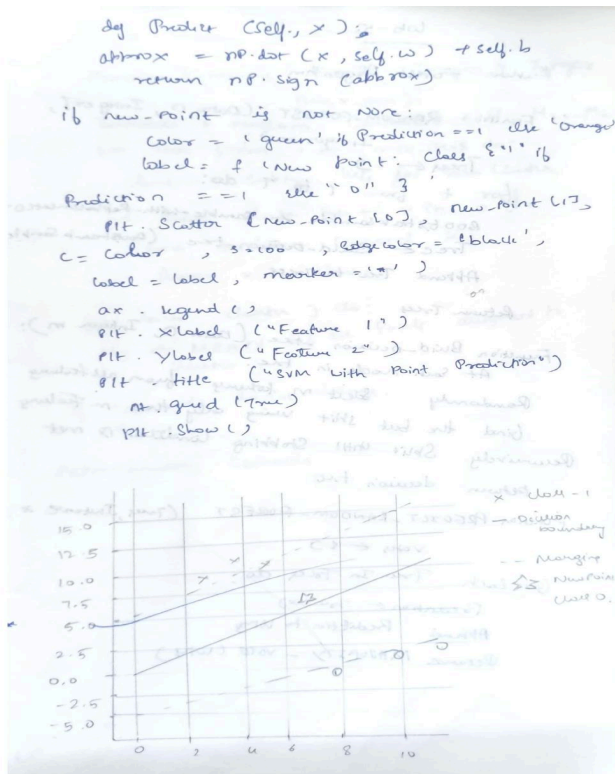 def Predict (self., x):
approx = np.dot (x, self.w) + self.b
return np.sign (approx)
if new-point is not None:
Color = 'green' if Prediction ==1 else 'Orange'
label = f 'New Point: Class {"1" if
Prediction == 1 else "0" }'
plt. Scatter [new-Point [0], new-Point [1],
C = Color, s=100, edgecolor = 'black',
label = label, marker = '*' )
ax. legend ()
plt. Xlabel ("Feature 1")
plt. Ylabel ("Feature 2")
plt. title ("SVM with Point Prediction")
plt. grid (True)
plt. Show ()
x class - 1
— Decision boundary
-- Margins
New Point
class 0.
15.0
12.5
10.0
7.5
5.0
2.5
0.0
-2.5
-5.0
0 2 4 6 8 10